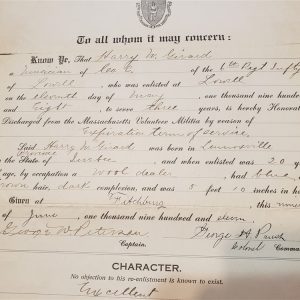 To all whom it may concern:
Know Ye, That Harry M. Girard
a Musician of Co. C of the 6th Regt Infty
of Lowell, who was enlisted at Lowell
on the eleventh day of May, one thousand nine hundred
and Eight, to serve three years, is hereby Honorably
Discharged from the Massachusetts Volunteer Militia by reason of
Expiration term of service.
Said Harry M. Girard was born in
in the State of, and when enlisted was 20 y
age, by occupation a wool dealer, had blue
brown hair, dark complexion, and was 5 feet 10 inches in he
Given at Fitchburg this
of June, one thousand nine hundred and
George W. Peterson
Captain.
George H.
Colonel Comma
CHARACTER.
No objection to his re-enlistment is known to exist.
Excellent